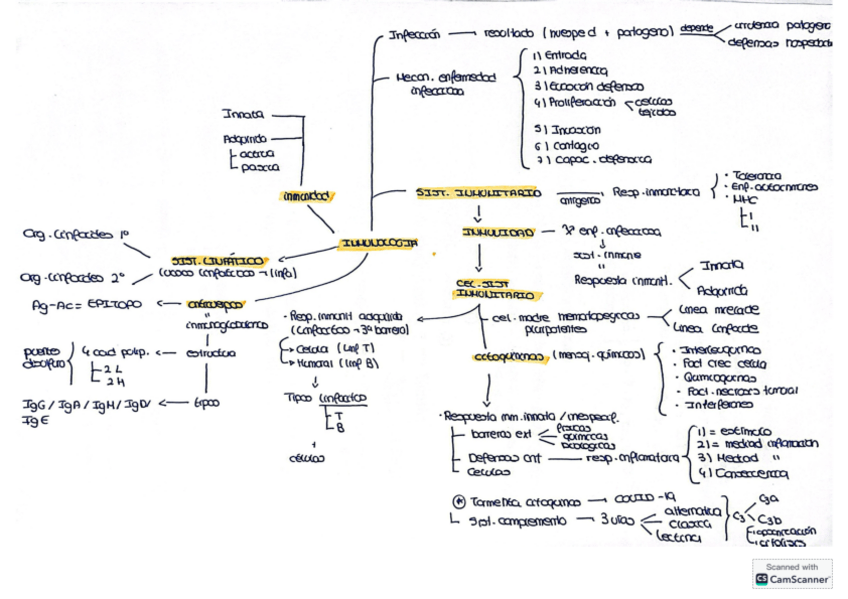 Infección → resultado (huésped + patógeno) depende
virulencia patógeno
defensas hospedador
Mecan. enfermedad
infecciosa
1) Entrada
2) Adherencia
3) Evasión defensas
4) Proliferación
células
tejidos
5) Invasión
6) Contagio
7) Capac. defensiva
Innata
Adquirida
activa
pasiva
inmunidad
SIST. INMUNITARIO
antígeno
Resp. inmunitaria
· Tolerancia
· Enf. autoinmunes
· MHC
I
II
INMUNOLOGIA
INMUNIDAD
enf. infecciosa
sist. inmune
"
Respuesta inmunit.
Innata
Adquirida
Org. linfoides 1º
Org. linfoides 2º
SIST. LINFÁTICO
(vasos linfáticos → linfa)
Ag-Ac = EPITOPO
anticuerpo
"
inmunoglobulina
puente
disulfuro
4 cad polip.
2 L
2 H
estructura
IgG / IgA / IgM / IgD /
IgE
tipos
CEL. SIST
INMUNITARIO
cel. madre hematopoyeticas
pluripotentes
Linea mieloide
Linea linfoide
· Resp. inmunit adquirida
(Linfocitos → 3ª barrera)
Celular (Linf T)
Humoral (Linf B)
Tipos linfocitos
T
B
+
células
citoquinas (mensaj. químicos)
· Interleuquinas
· Fact crec celula
· Quimioquinas
· Fact. necrosis tumoral
· Interferones
· Respuesta inm. innata / inespecif.
barreras ext
físicas
químicas
biológicas
Defensas int → resp. inflamatoria
Celulas
1) = estímulo
2) = mediad inflamación
3) Mediad "
4) Consecuencia
* Tormenta citoquinas → COVID-19
Sist. complemento → 3 vías
alternativa
clásica
lectina
C3
C3a
C3b
opsonización
Scanned with
CS CamScanner